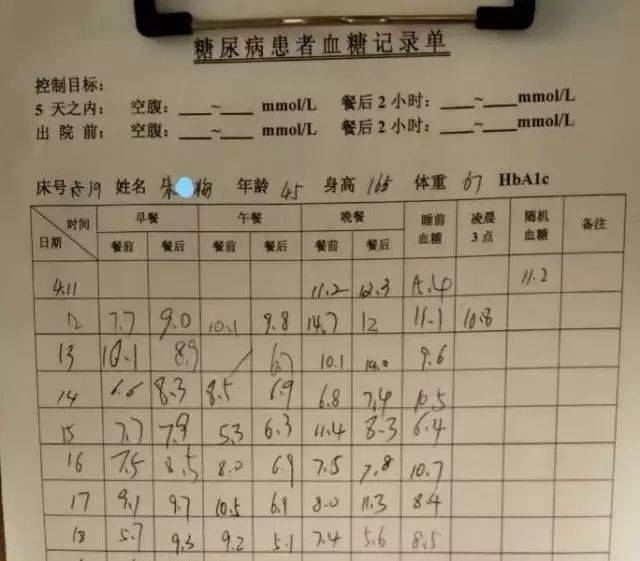 糖尿病患者血糖记录单
控制目标：
5 天之内： 空腹：___~___mmol/L 餐后 2 小时：___~___mmol/L
出 院 前： 空腹：___~___mmol/L 餐后 2 小时：___~___mmol/L
床号 19 姓名 朱 梅 年龄 45 身高 165 体重 67 HbA1c
时间 早餐 午餐 晚餐 睡前血糖 凌晨3点 随机血糖 备注
日期 餐前 餐后 餐前 餐后 餐前 餐后
4.11 11.2 12.3 11.2
12 7.7 9.0 10.1 9.8 14.7 12 11.1 10.8
13 10.1 8.9 / 6.7 10.1 14.0 9.6
14 6.6 8.3 8.5 6.9 6.8 7.4 10.5
15 7.7 7.9 5.3 6.3 11.4 8.3 6.4
16 7.5 8.5 8.0 6.9 7.5 7.8 10.7
17 9.1 9.7 10.5 6.9 8.0 11.3 8.4
18 5.7 9.3 9.2 5.1 7.4 5.6 8.5